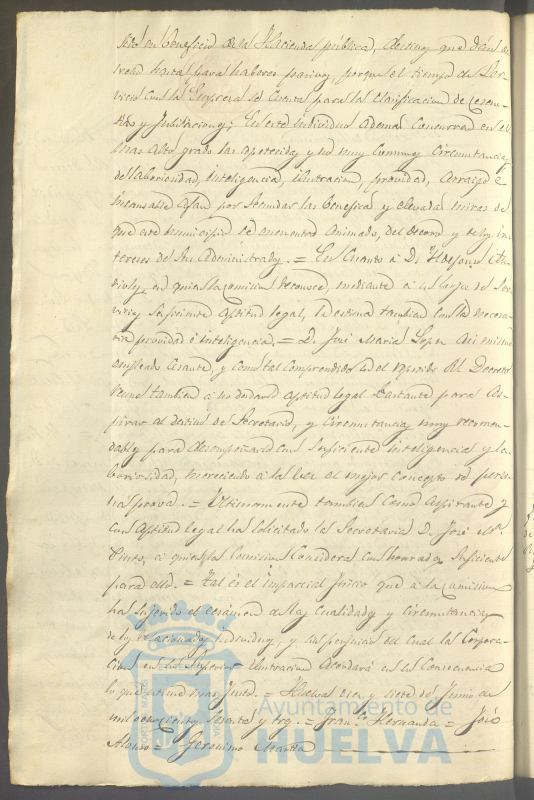 en beneficio de la Hacienda pública, destinos que dán de
hasta para haberes pasivos, porque el tiempo de Ser-
vicio en la Empresa se cuenta para la clasificacion de cesan-
tias y Jubilaciones; En este individuo ademas concurren en el
mas alto grado las apetecidas y no muy comunes circunstancias
de laboriosidad, inteligencia, ilustracion, probidad, arraigo é
incansable afan por secundar las beneficas y elevadas miras de
que este municipio se encuentra animado, del decoro y de los in-
tereses de sus Administrados. = En cuanto á D. Ildefonso
en quien la comision reconoce, mediante á sus hojas de Ser-
vicios suficiente aptitud legal, le estima tambien con la necesa-
ria probidad é inteligencia. = D. José Maria Lopez asi mismo
empleado cesante, y como tal comprendido en el Real Decreto
reune tambien á no dudarlo aptitud legal bastante para as-
pirar al destino de Secretario, y circunstancias muy recomen-
dables para desempeñarlo con suficiente inteligencia y la-
boriosidad, mereciendo á la vez el mejor concepto de
proba. = Ultimamente tambien como aspirante y
con aptitud legal ha solicitado la Secretaria D. José Mª
Pinto, á quien la comision considera con honradez suficiente
para ello. = Tal es el imparcial juicio que á la comision
ha sugerido el exámen de las cualidades y circunstancias
de los relacionados individuos, y sin perjuicio del cual la Corpora-
cion en su superior ilustracion acordará en su consecuencia
lo que estime mas justo. = Huelva diez y siete de Junio de
mil ochocientos sesenta y tres. = Franco. Hernandez = José
Alonso = Geronimo Martin
Ayuntamiento de
HUELVA